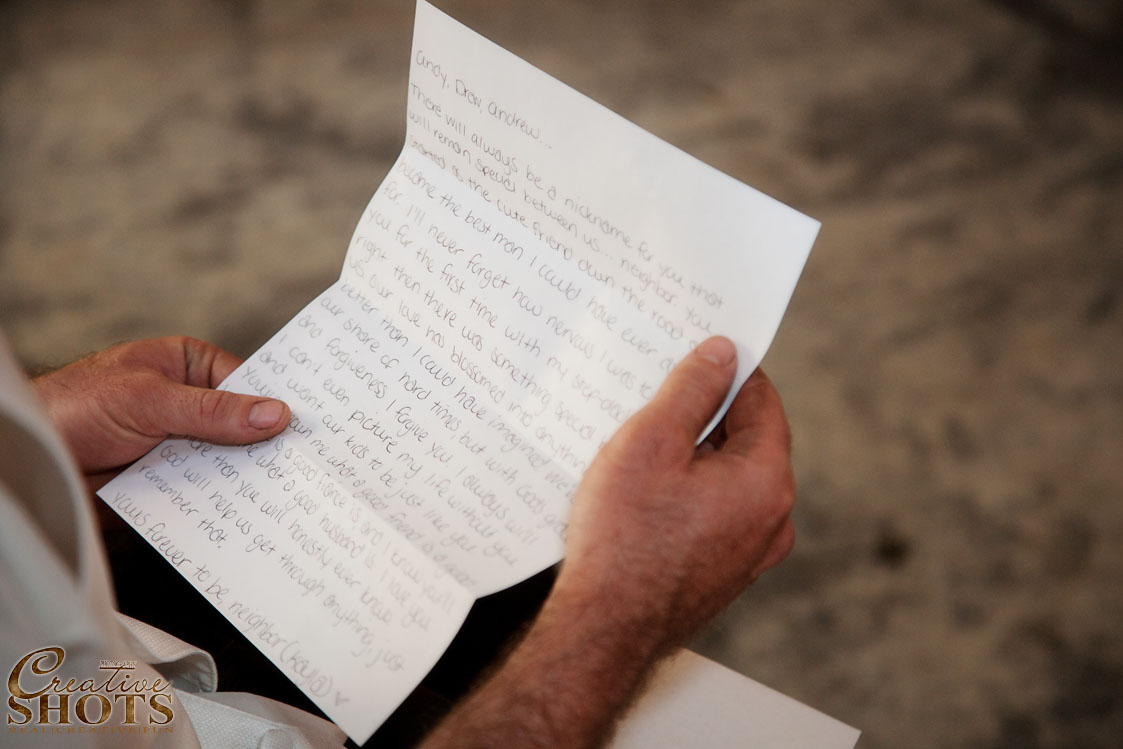 andy, Drew, andrew...
There will always be a nickname for you that
will remain special between us... neighbor. You
started as the cute friend down the road
become the best man I could have ever
for. I'll never forget how nervous I was to
you for the first time with my step-dad
right then there was something special
us. our love has blossomed into anything
better than I could have imagined. we've
our share of hard times, but with God's
and forgiveness I forgive you, I always will
I can't even picture my life without you
and want our kids to be just like you
me what a good friend is
is a good fiance is and I know you'll
me what a good husband is. I love you
more than you will honestly ever know
God will help us get through anything, just
remember that.
yours forever to be, neighbor (Kayla) ♥
Creative
SHOTS
REAL|CREATIVE|FUN